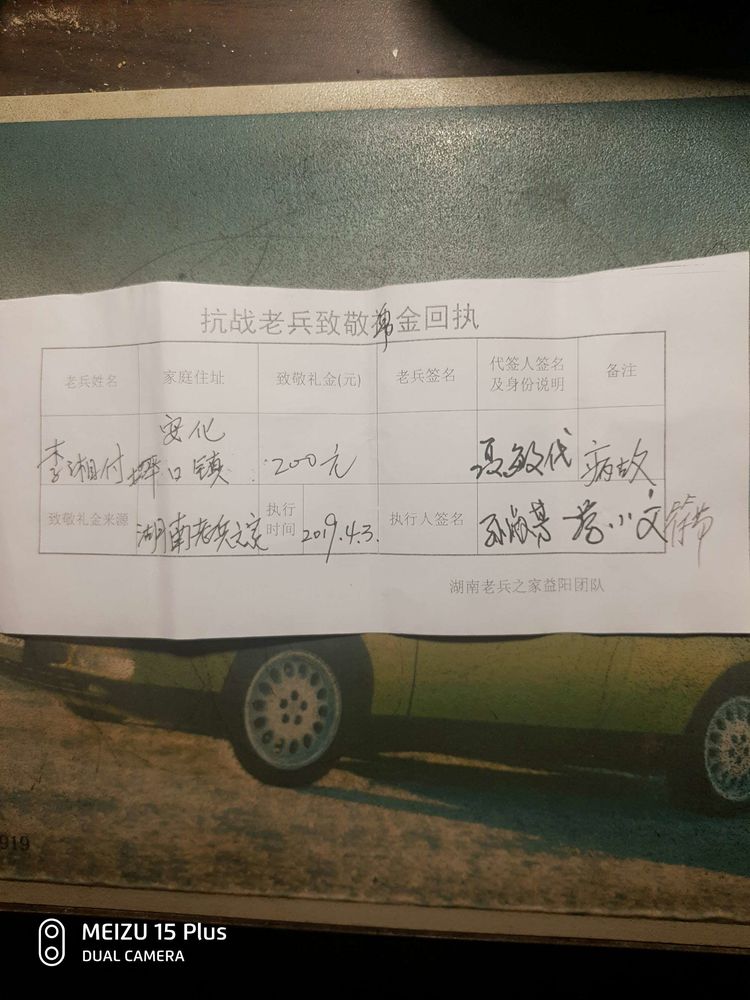 抗战老兵致敬金回执
老兵姓名 家庭住址 致敬礼金(元) 老兵签名 代签人签名及身份说明 备注
李湘付 安化坪口镇 200元 聂敏代 病故
致敬礼金来源 湖南老兵之家 执行时间 2019.4.3. 执行人签名
湖南老兵之家益阳团队
919
MEIZU 15 Plus
DUAL CAMERA